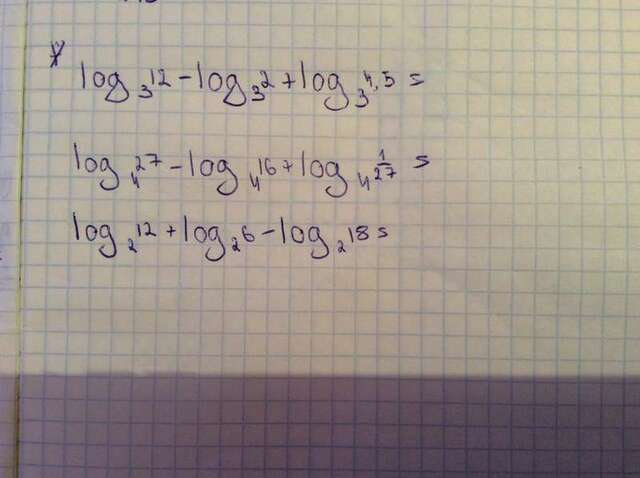 log₃12 - log₃2 + log₃4,5 =
log₄27 - log₄16 + log₄1/27 =
log₂12 + log₂6 - log₂18 =